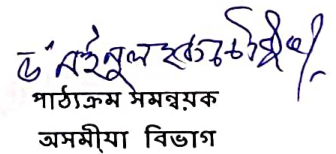 ড° নইনুল হক চৌধুৰী
পাঠ্যক্ৰম সমন্বয়ক
অসমীয়া বিভাগ